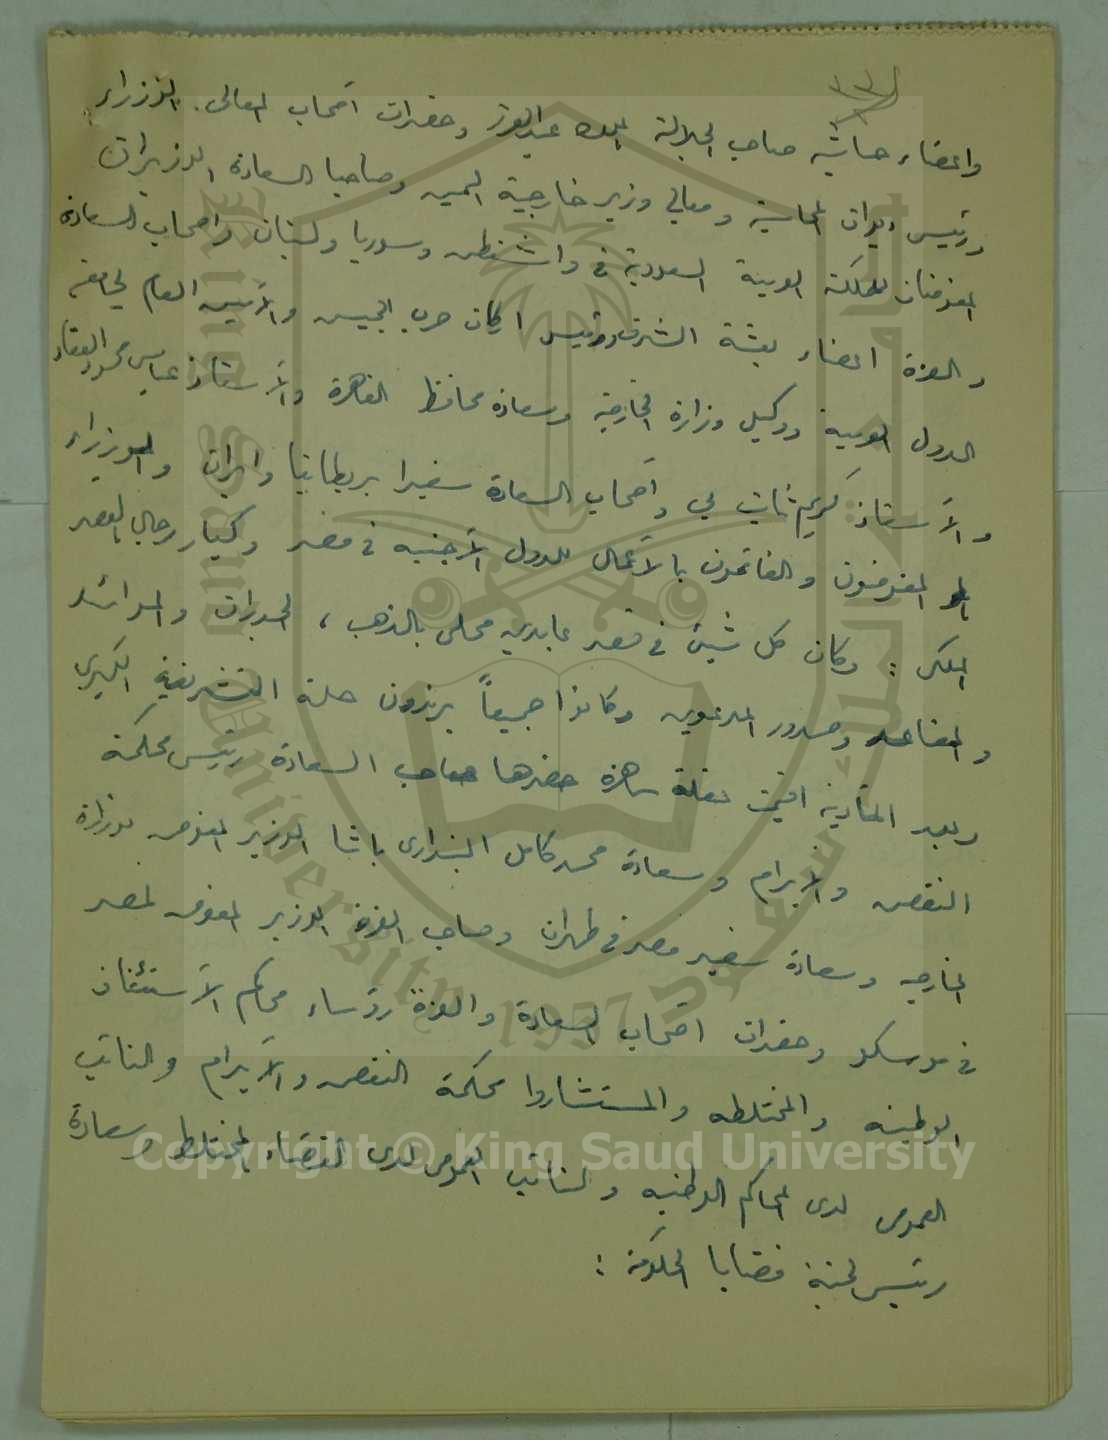 ٣٣
واعضاء حاشية صاحب الجلالة الملك عبدالعزيز وحضرات أصحاب المعالى الوزراء
ورئيس ديوان المحاسبة ومعالي وزير خارجية اليمن وصاحبا السعادة الوزيران
المفوضان للمملكة العربية السعودية في واشنطن وسوريا ولبنان وأصحاب السعادة
والعزة اعضاء بعثة الشرف ورئيس اركان حرب الجيش والأمين العام لجامعة
الدول العربية ووكيل وزارة الخارجية وسعادة محافظ القاهرة والأستاذ عباس محمود العقاد
والأستاذ كريم ثابت بي وأصحاب السعادة سفيرا بريطانيا وايران والوزراء
المفوضون والقائمون بالأعمال للدول الأجنبيه في مصر وكبار رجال القصر
الملكى : وكان كل شيئ في قصر عابدين محلى بالذهب ، الجدران والموائد
والمقاعد وصدور المدعوين وكانوا جميعاً يرتدون حلة التشريفة الكبرى
وبعد المأدبة اقيمت حفلة ساهرة حضرها صاحب السعادة رئيس محكمة
النقض والأبرام وسعادة محمد كامل البنداري باشا الوزير المفوض بوزارة
الخارجيه وسعادة سفير مصر في طهران وصاحب العزة الوزير المفوض لمصر
في موسكو وحضرات أصحاب السعادة والعزة رؤساء محاكم الأستئناف
الوطنيه والمختلطه والمستشاروا محكمة النقض والأبرام والنائب
العمومى لدى المحاكم الوطنيه والنائب العمومى لدى القضاء المختلط وسعادة
رئيس لجنة قضايا الحكومة :
King Saud University
جامعة الملك سعود
1957
Copyright © King Saud University